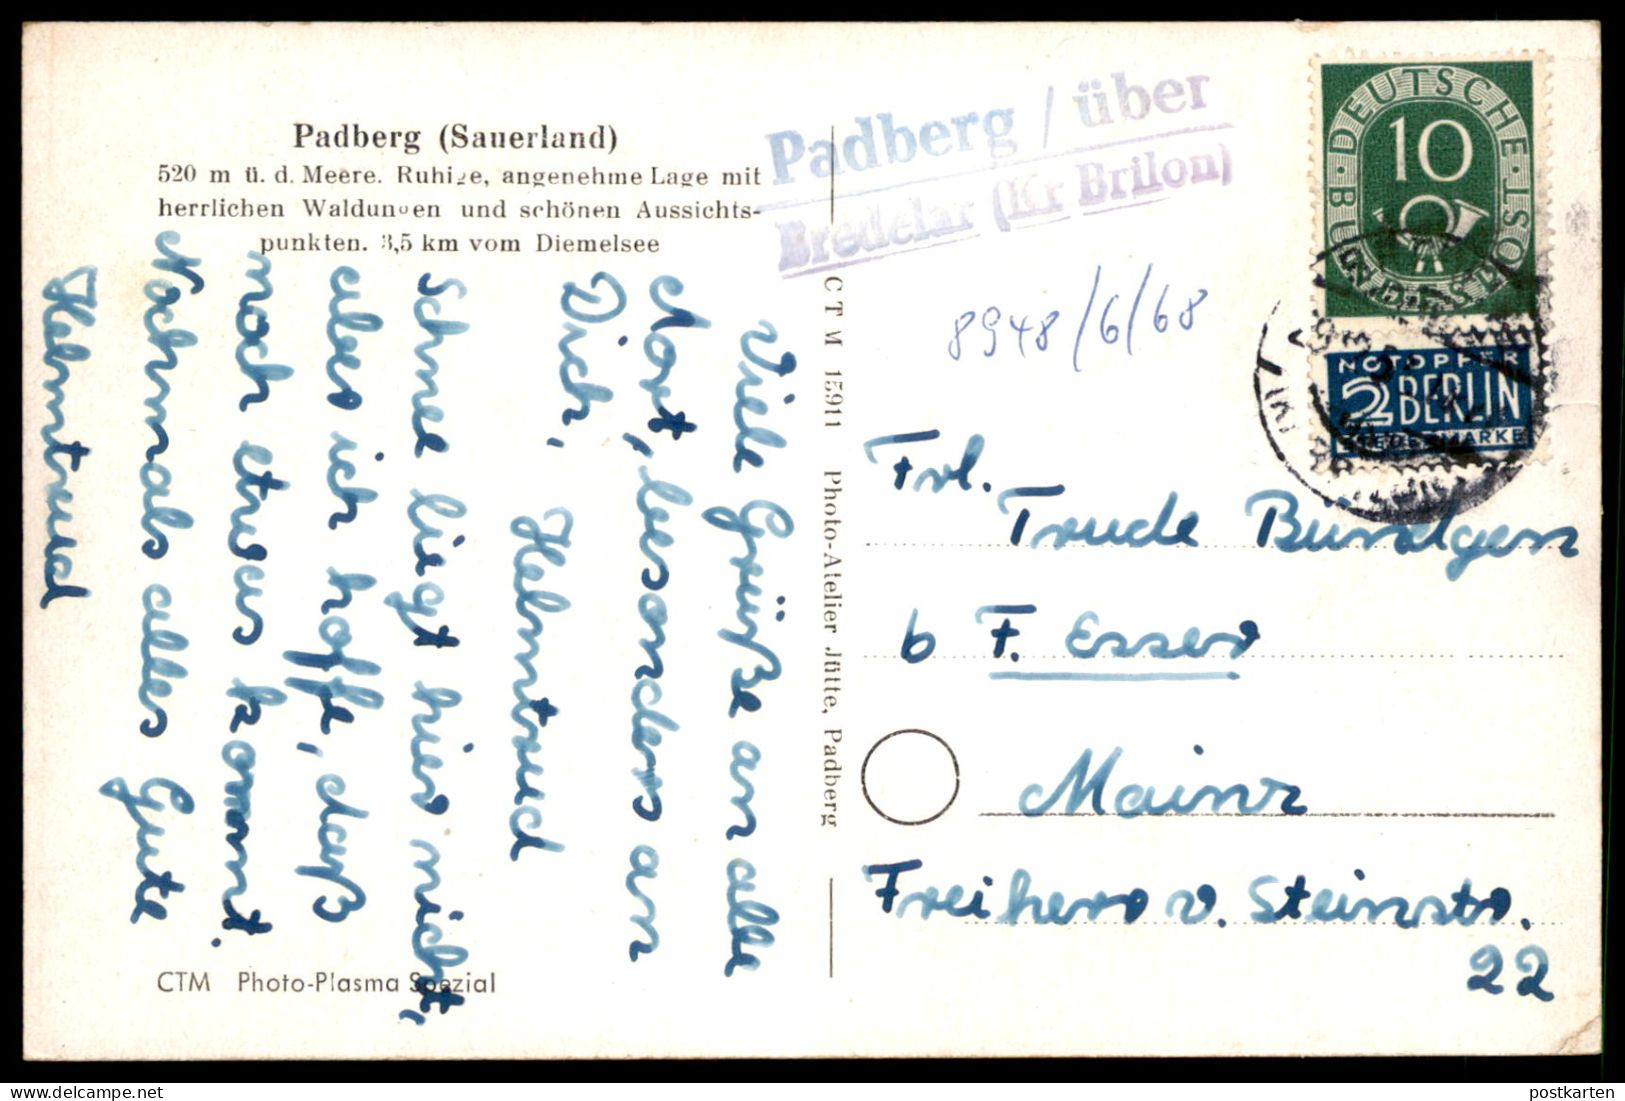 Padberg (Sauerland)
520 m ü. d. Meere. Ruhige, angenehme Lage mit
herrlichen Waldungen und schönen Aussichts-
punkten. 3,5 km vom Diemelsee
Padberg / über
Bredelar (Kr Brilon)
8948/6/68
DEUTSCHE BUNDESPOST
10
NOTOPFER
2 BERLIN
STEUERMARKE
Viele Grüße an alle
dort, besonders an
Dich,
Helmtrud
Schnee liegt hier nicht,
aber ich hoffe, daß
noch etwas kommt.
Nochmals alles Gute
Helmtrud
CTM 15911 Photo-Atelier Jütte, Padberg
Frl.
Trude Bündgen
b F. Esser
Mainz
Freiherr v. Steinstr.
22
CTM Photo-Plasma Spezial
postkarten